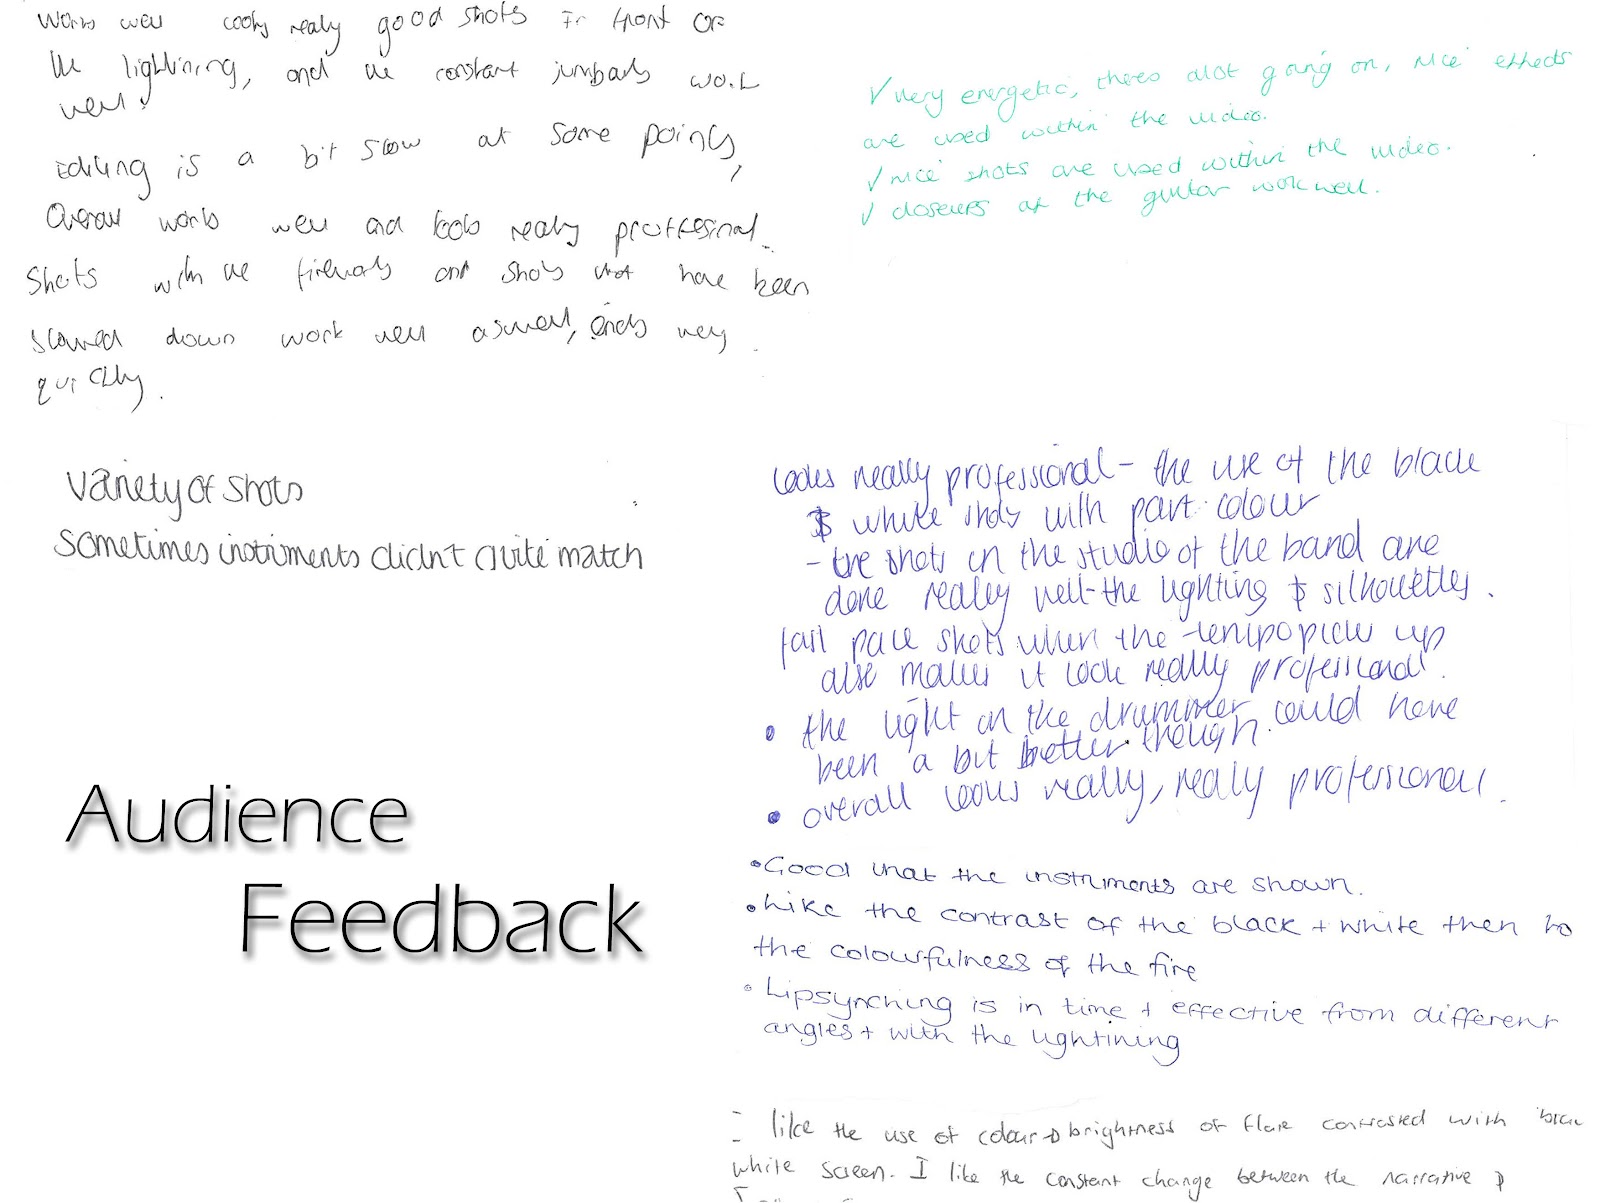 works well looks really good shots in front of
the lightining, and the constant jumbcuts work
well.
Editing is a bit slow at some points,
Overall works well and looks really proffesinal.
Shots with the fireworks and shots that have been
slowed down work well aswell, ends very
quickly.
✓ very energetic, theres alot going on, nice effects
are used within the video.
✓ nice shots are used within the video.
✓ closeups of the guitar work well.
Variety of shots
Sometimes instruments didn't quite match
looks really professional - the use of the black
& white shots with part colour
- the shots in the studio of the band are
done really well - the lighting & silhouettes.
fast pace shots when the tempo picks up
also makes it look really professional.
• the light on the drummer could have
been a bit better though.
• overall looks really, really professional.
Audience
Feedback
• Good that the instruments are shown.
• Like the contrast of the black + white then to
the colourfulness of the fire
• Lipsynching is in time + effective from different
angles + with the lightining
- like the use of colour & brightness of flare contrasted with
white screen. I like the constant change between the narrative &